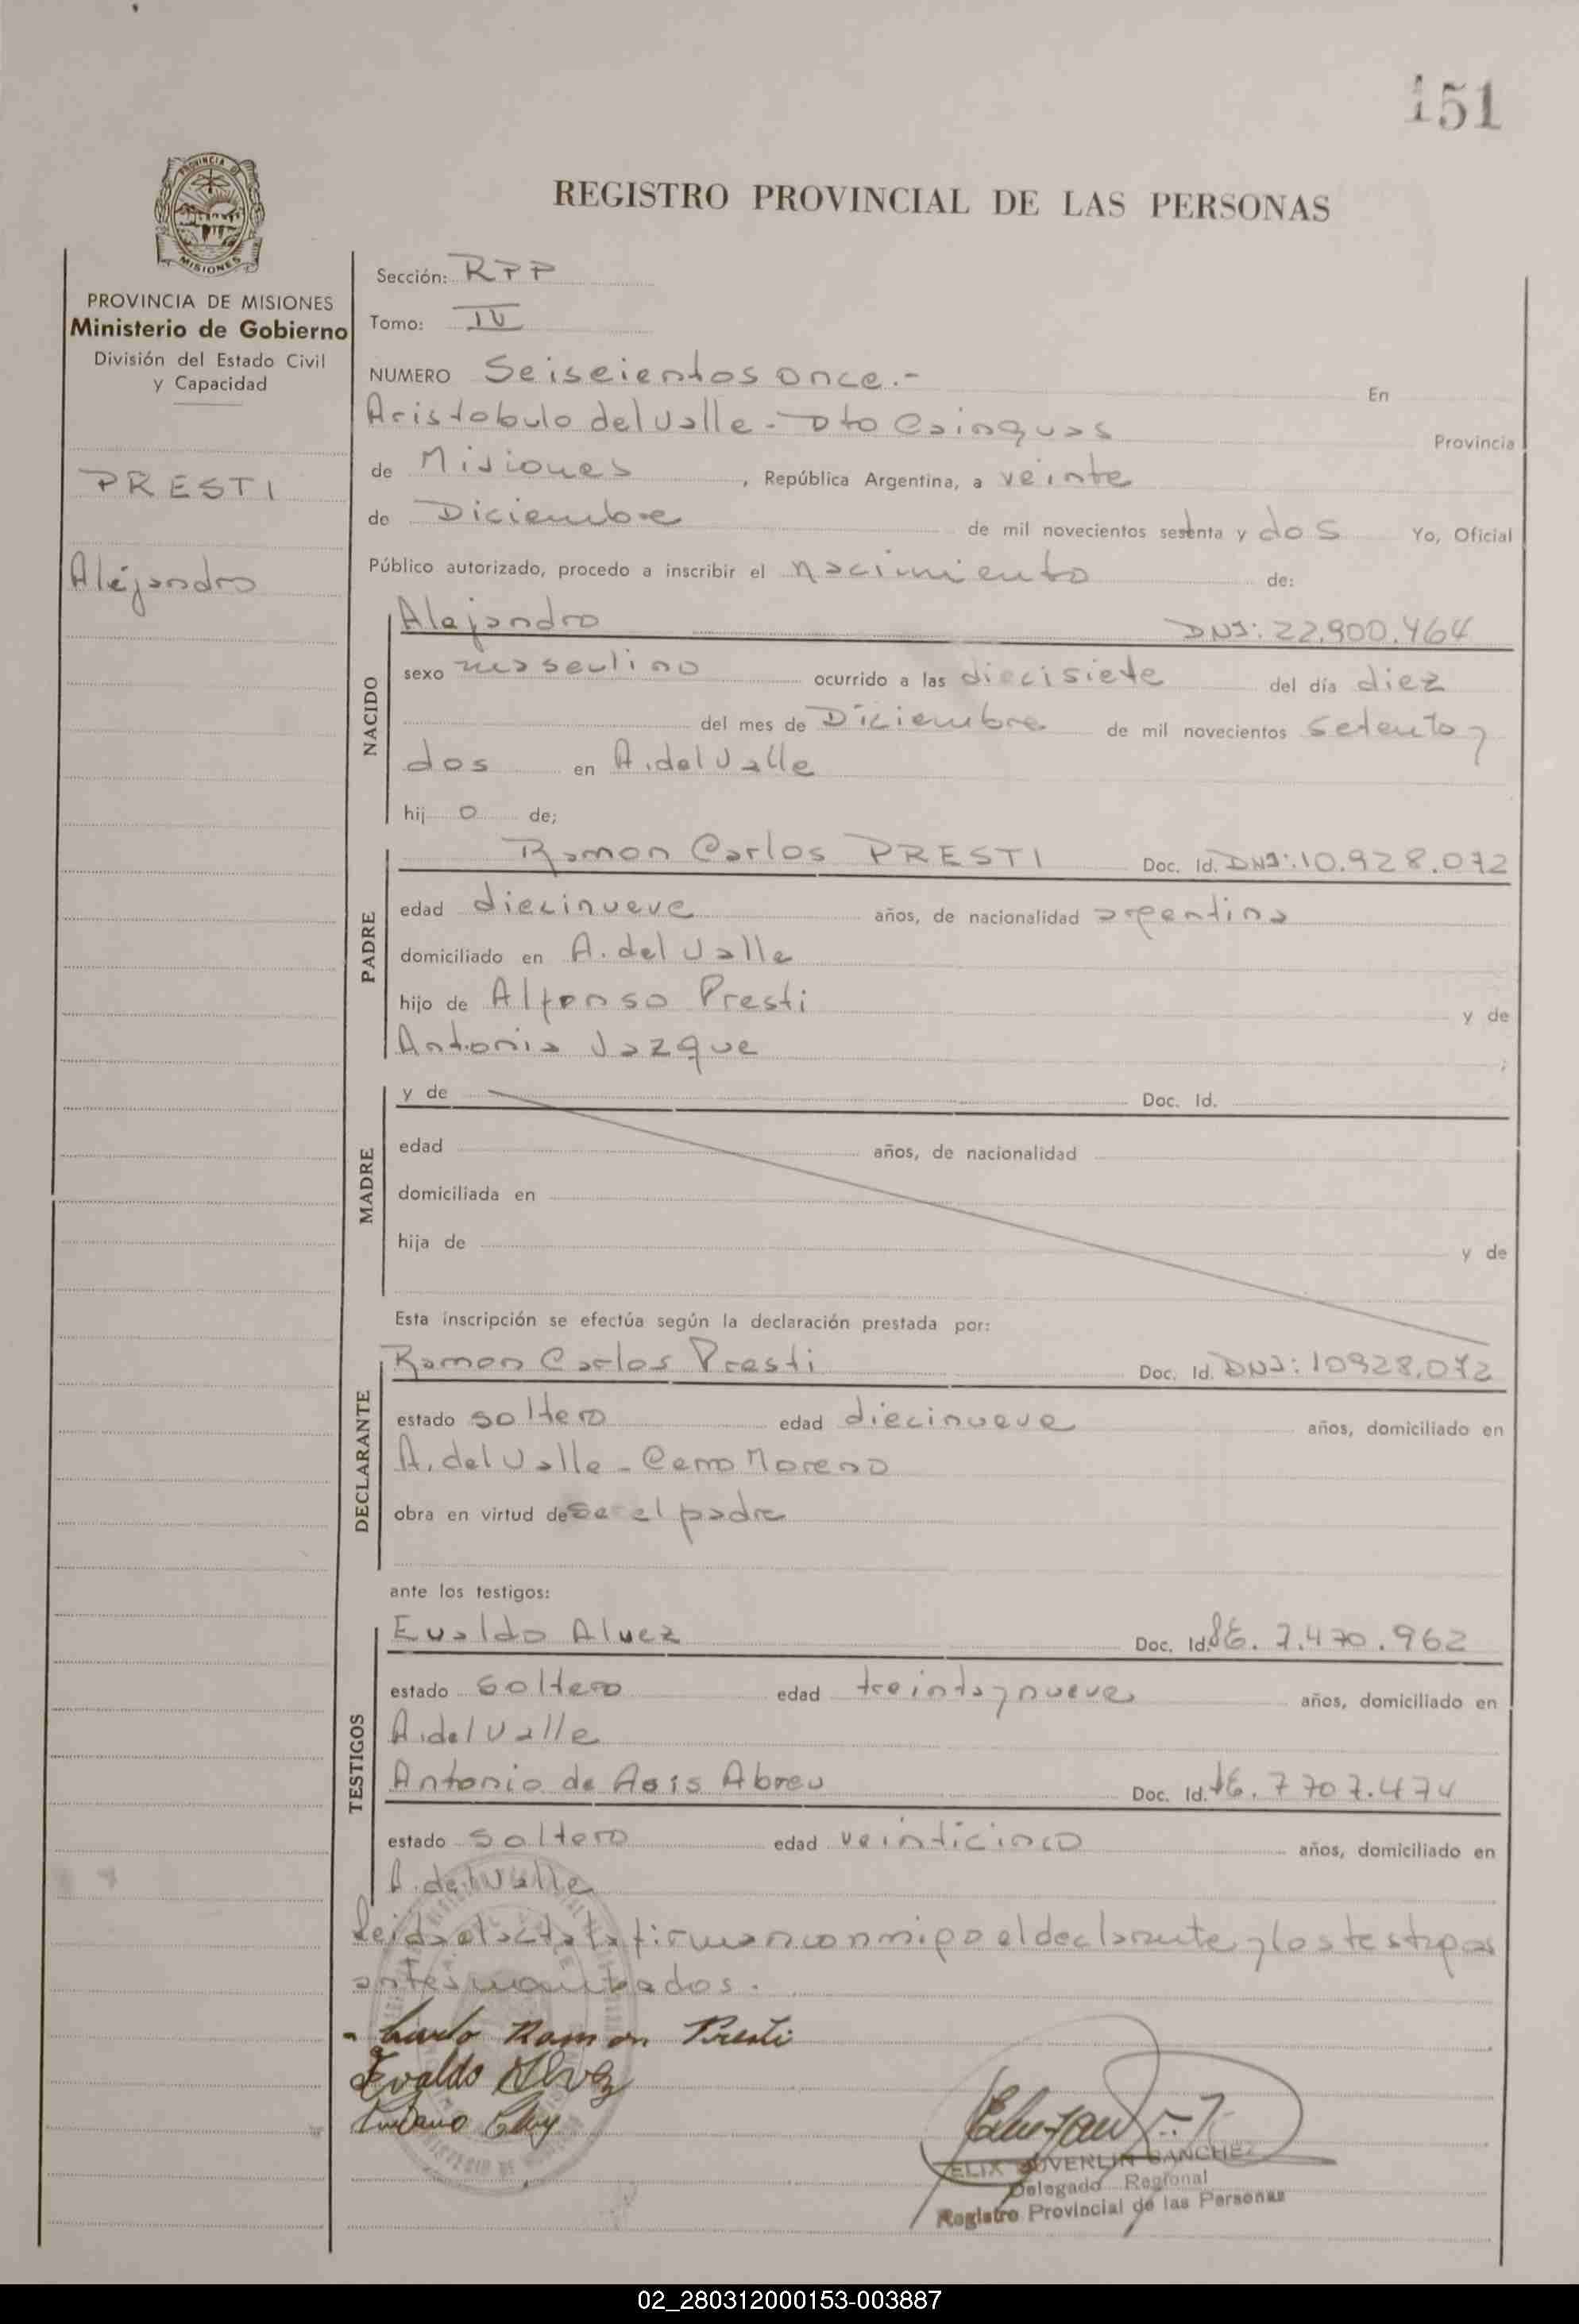 151
PROVINCIA DE
MISIONES
REGISTRO PROVINCIAL DE LAS PERSONAS
PROVINCIA DE MISIONES
Ministerio de Gobierno
División del Estado Civil
y Capacidad
PRESTI
Alejandro
Sección: RPP
Tomo: IV
NUMERO Seiscientos once.- En
Aristobulo del Valle - Dto Cainguas Provincia
de Misiones, República Argentina, a veinte
de Diciembre de mil novecientos setenta y dos Yo, Oficial
Público autorizado, procedo a inscribir el nacimiento de:
NACIDO
Alejandro DNI: 22.900.464
sexo masculino ocurrido a las diecisiete del día diez
del mes de Diciembre de mil novecientos setenta y
dos en A. del Valle
hij o de;
PADRE
Ramon Carlos PRESTI Doc. Id. DNI: 10.928.072
edad diecinueve años, de nacionalidad argentina
domiciliado en A. del Valle
hijo de Alfonso Presti y de
Antonia Vazque ;
MADRE
y de Doc. Id.
edad años, de nacionalidad
domiciliada en
hija de y de
Esta inscripción se efectúa según la declaración prestada por:
DECLARANTE
Ramon Carlos Presti Doc. Id. DNI: 10928.072
estado soltero edad diecinueve años, domiciliado en
A. del Valle - Cerro Moreno
obra en virtud de se el padre
ante los testigos:
TESTIGOS
Evaldo Alvez Doc. Id. 7.470.962
estado soltero edad treinta y nueve años, domiciliado en
A. del Valle
Antonio de Asis Abreu Doc. Id. 7707.474
estado soltero edad veinticinco años, domiciliado en
A. del Valle
Leida el acta la firman conmigo el declarante y los testigos
antes nombrados.
Carlo Ramon Presti
Evaldo Alvez
SANCHEZ
Delegado Regional
Registro Provincial de las Personas
02_280312000153-003887